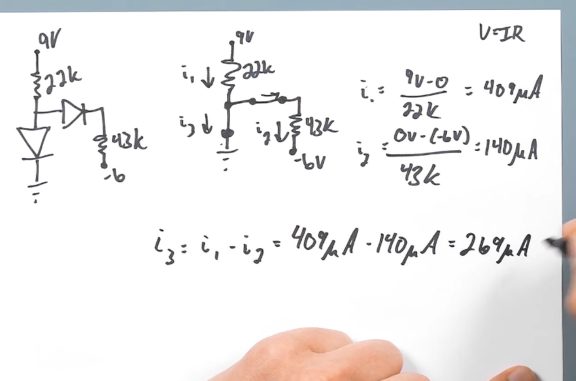 9V
22k
43k
-6
9V
i₁ ↓ 22k
i₃ ↓
i₂ ↓ 43k
-6V
V=IR
i₁ = 9V-0 / 22k = 409μA
i₂ = 0V-(-6V) / 43k = 140μA
i₃ = i₁ - i₂ = 409μA - 140μA = 269μA